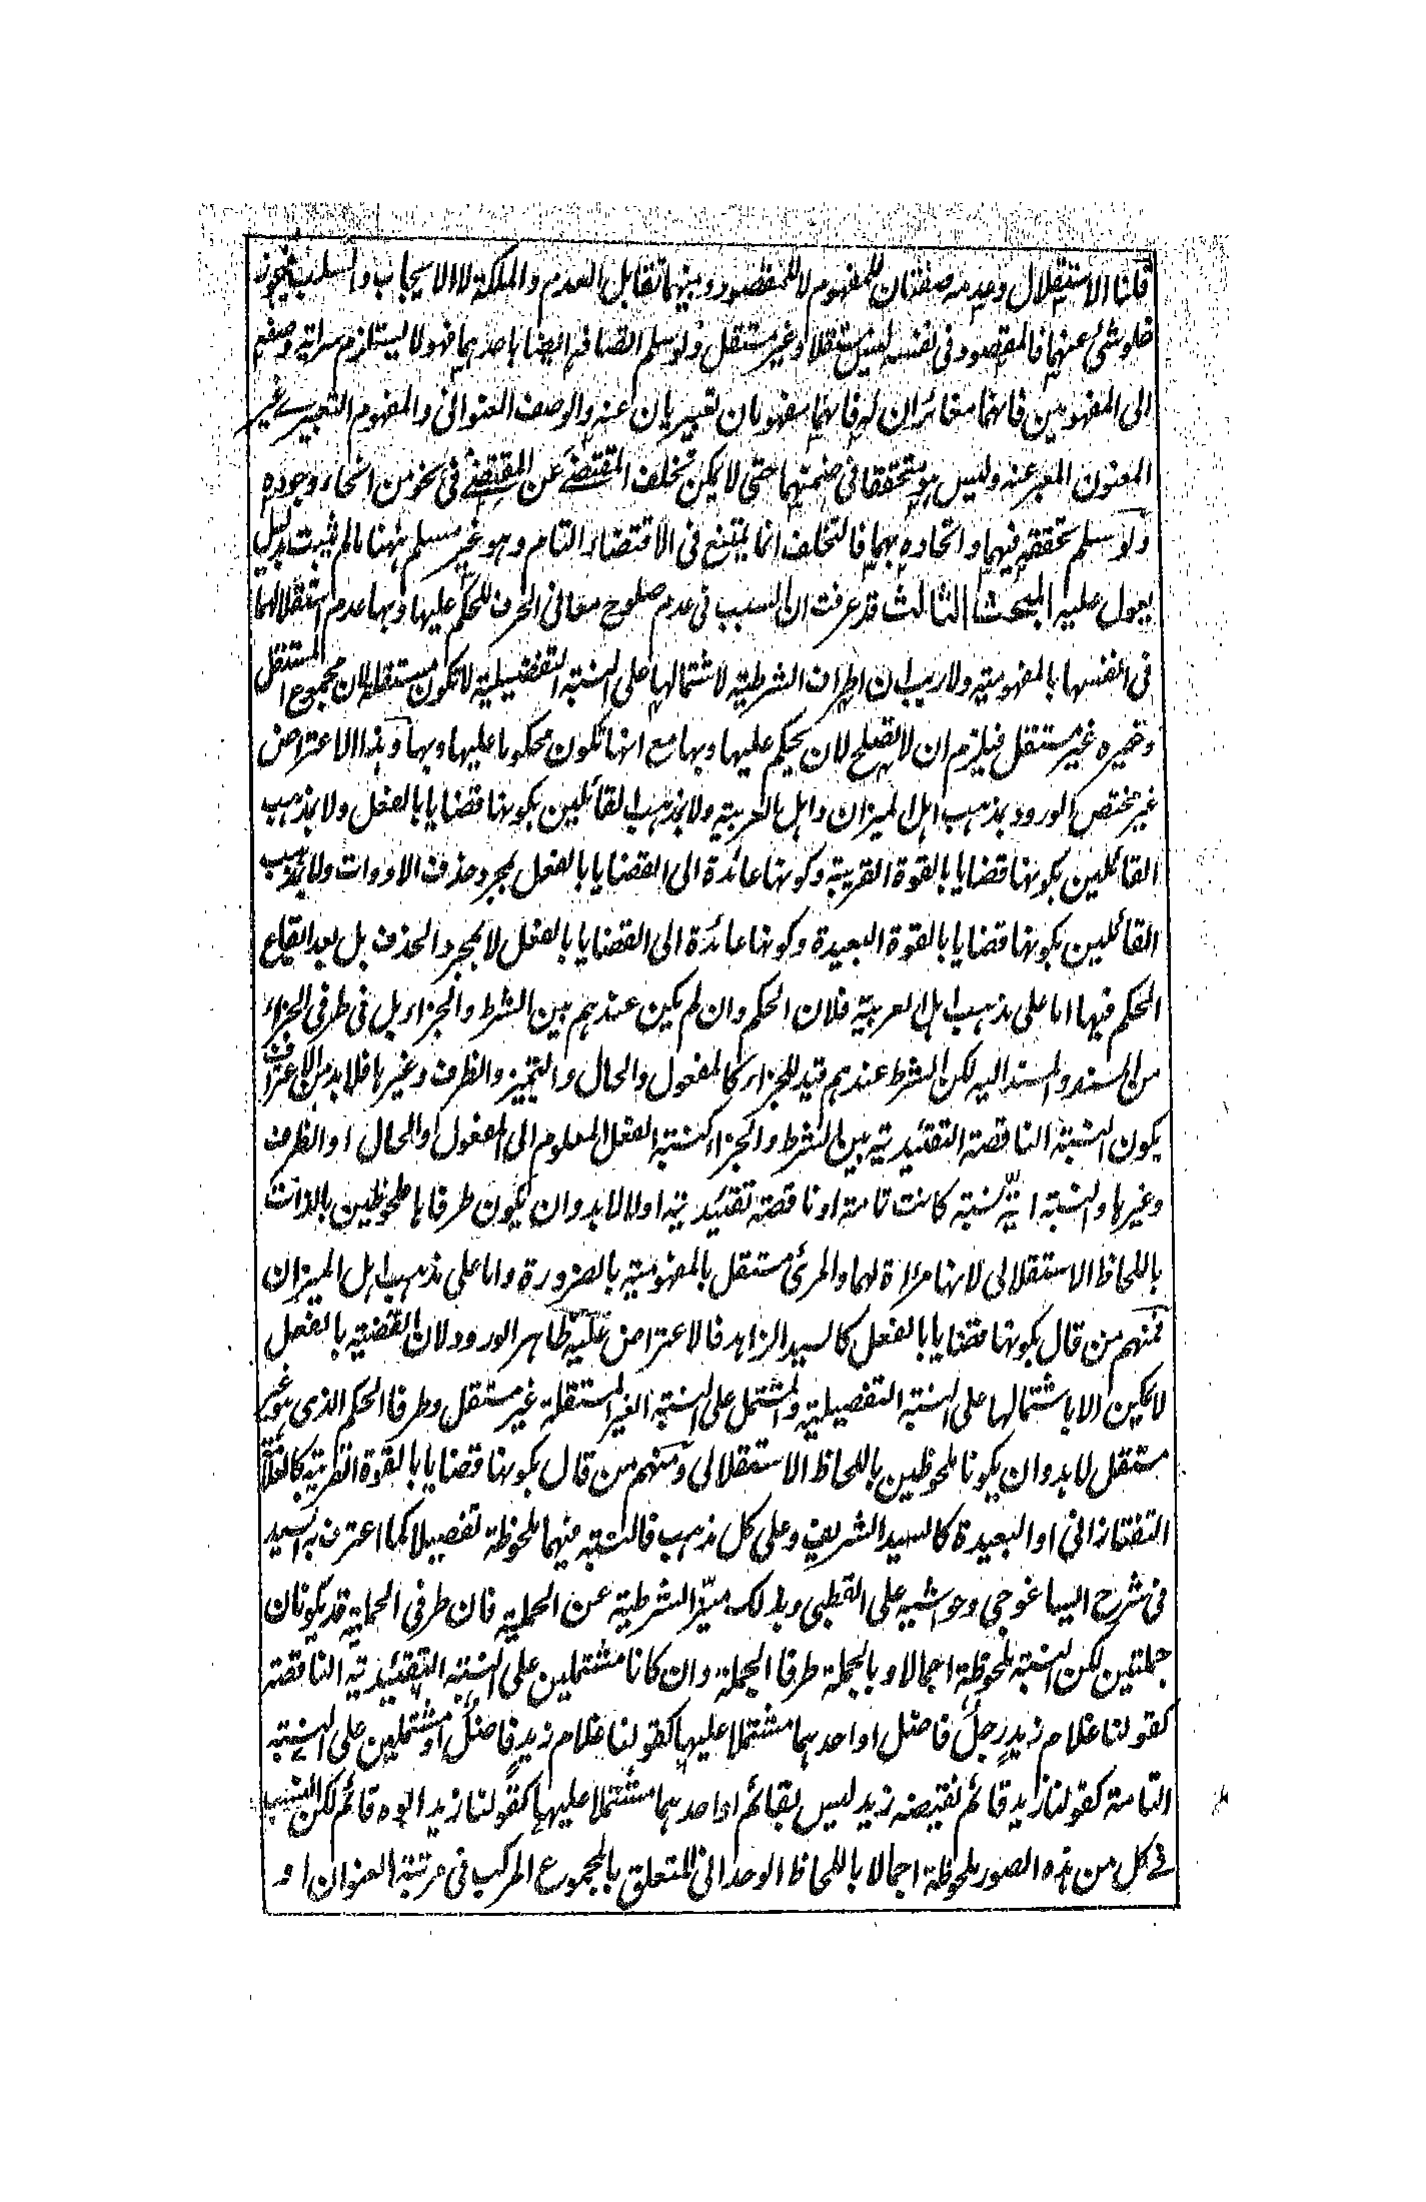 قلنا الاستقلال وعدمه صفتان للمفهوم لا للمقصود وبينهما تقابل العدم والملكة لا الايجاب والسلب فيجوز
خلو شئ عنهما فالمقصود فى نفسه ليس مستقلا وغير مستقل ولو سلم اتصافه ايضا باحدهما فهو لا يستلزم سراية وصفه
الى المفهومين فانهما مغائران له فانهما مفهومان تعبيريان عنه والوصف العنوانى والمفهوم التعبيرى غير
المعنون المعبر عنه وليس هو متحققا فى ضمنهما حتى لا يمكن تخلف المقتضے عن المقتضے فى نحو من انحاء وجوده
ولو سلم تحققه فيهما واتحاده بهما فالتخلف انما يمتنع فى الاقتضاء التام وهو غير مسلم ههنا مالم يثبت بدليل
يعول عليه المبحث الثالث قد عرفت ان السبب فى عدم صلوح معانى الحرف للحكم عليها وبها عدم استقلالها
فى انفسها بالمفهومية ولا ريب ان اطراف الشرطية لاشتمالها على النسبة التفصيلية لا تكون مستقلة لان مجموع المستقل
وغيره غير مستقل فيلزم ان لا تصلح لان يحكم عليها وبها مع انها تكون محكوما عليها وبها وهذا الاعتراض
غير مختص الورود بمذهب اهل الميزان واهل العربية ولا بمذهب القائلين بكونها قضايا بالفعل ولا بمذهب
القائلين بكونها قضايا بالقوة القريبة وكونها عائدة الى القضايا بالفعل بمجرد حذف الادوات ولا بمذهب
القائلين بكونها قضايا بالقوة البعيدة وكونها عائدة الى القضايا بالفعل لا بمجرد الحذف بل بعد ايقاع
الحكم فيها اما على مذهب اهل العربية فلان الحكم وان لم يكن عندهم بين الشرط والجزاء بل فى طرفى الجزاء
من المسند والمسند اليه لكن الشرط عندهم قيد للجزاء كالمفعول والحال والتميز والظرف وغيرها فلا بد من الاعتراف
بكون النسبة الناقصة التقئيدية بين الشرط والجزاء كنسبة الفعل المعلوم الى المفعول او الحال او الظرف
وغيرها والنسبة اية نسبة كانت تامة او ناقصة تقئيدية او لا لا بد وان يكون طرفاها ملحوظين بالذات
باللحاظ الاستقلالى لانها مرءاة لهما والمرئ مستقل بالمفهومية بالضرورة واما على مذهب اهل الميزان
فمنهم من قال بكونها قضايا بالفعل كالسيد الزاهد فالاعتراض عليه ظاهر الورود لان القضية بالفعل
لا يكون الا باشتمالها على النسبة التفصيلية والمشتمل على النسبة الغير المستقلة غير مستقل وطرفا الحكم الذى هو غير
مستقل لا بد وان يكونا ملحوظين باللحاظ الاستقلالى ومنهم من قال بكونها قضايا بالقوة القريبة كالعلامة
التفتازانى او البعيدة كالسيد الشريف وعلى كل مذهب فالنسبة فيهما ملحوظة تفصيلا كما اعترف به السيد
فى شرح ايساغوجى وحواشيه على القطبى وبذلك ميّز الشرطية عن الحملية فان طرفى الحملية قد يكونان
جملتين لكن النسبة ملحوظة اجمالا وبالجملة طرفا الجملة وان كانا مشتملين على النسبة التقئيدية الناقصة
كقولنا غلام زيدٍ رجلٌ فاضل او احدهما مشتملا عليها كقولنا غلام زيدٍ فاضلٌ او مشتملين على النسبة
التامة كقولنا زيد قائم نقيضه زيد ليس بقائم او احدهما مشتملا عليها كقولنا زيد ابوه قائم لكن النسب
فے كل من هذه الصور ملحوظة اجمالا باللحاظ الوحدانى المتعلق بالمجموع المركب فى مرتبة العنوان او